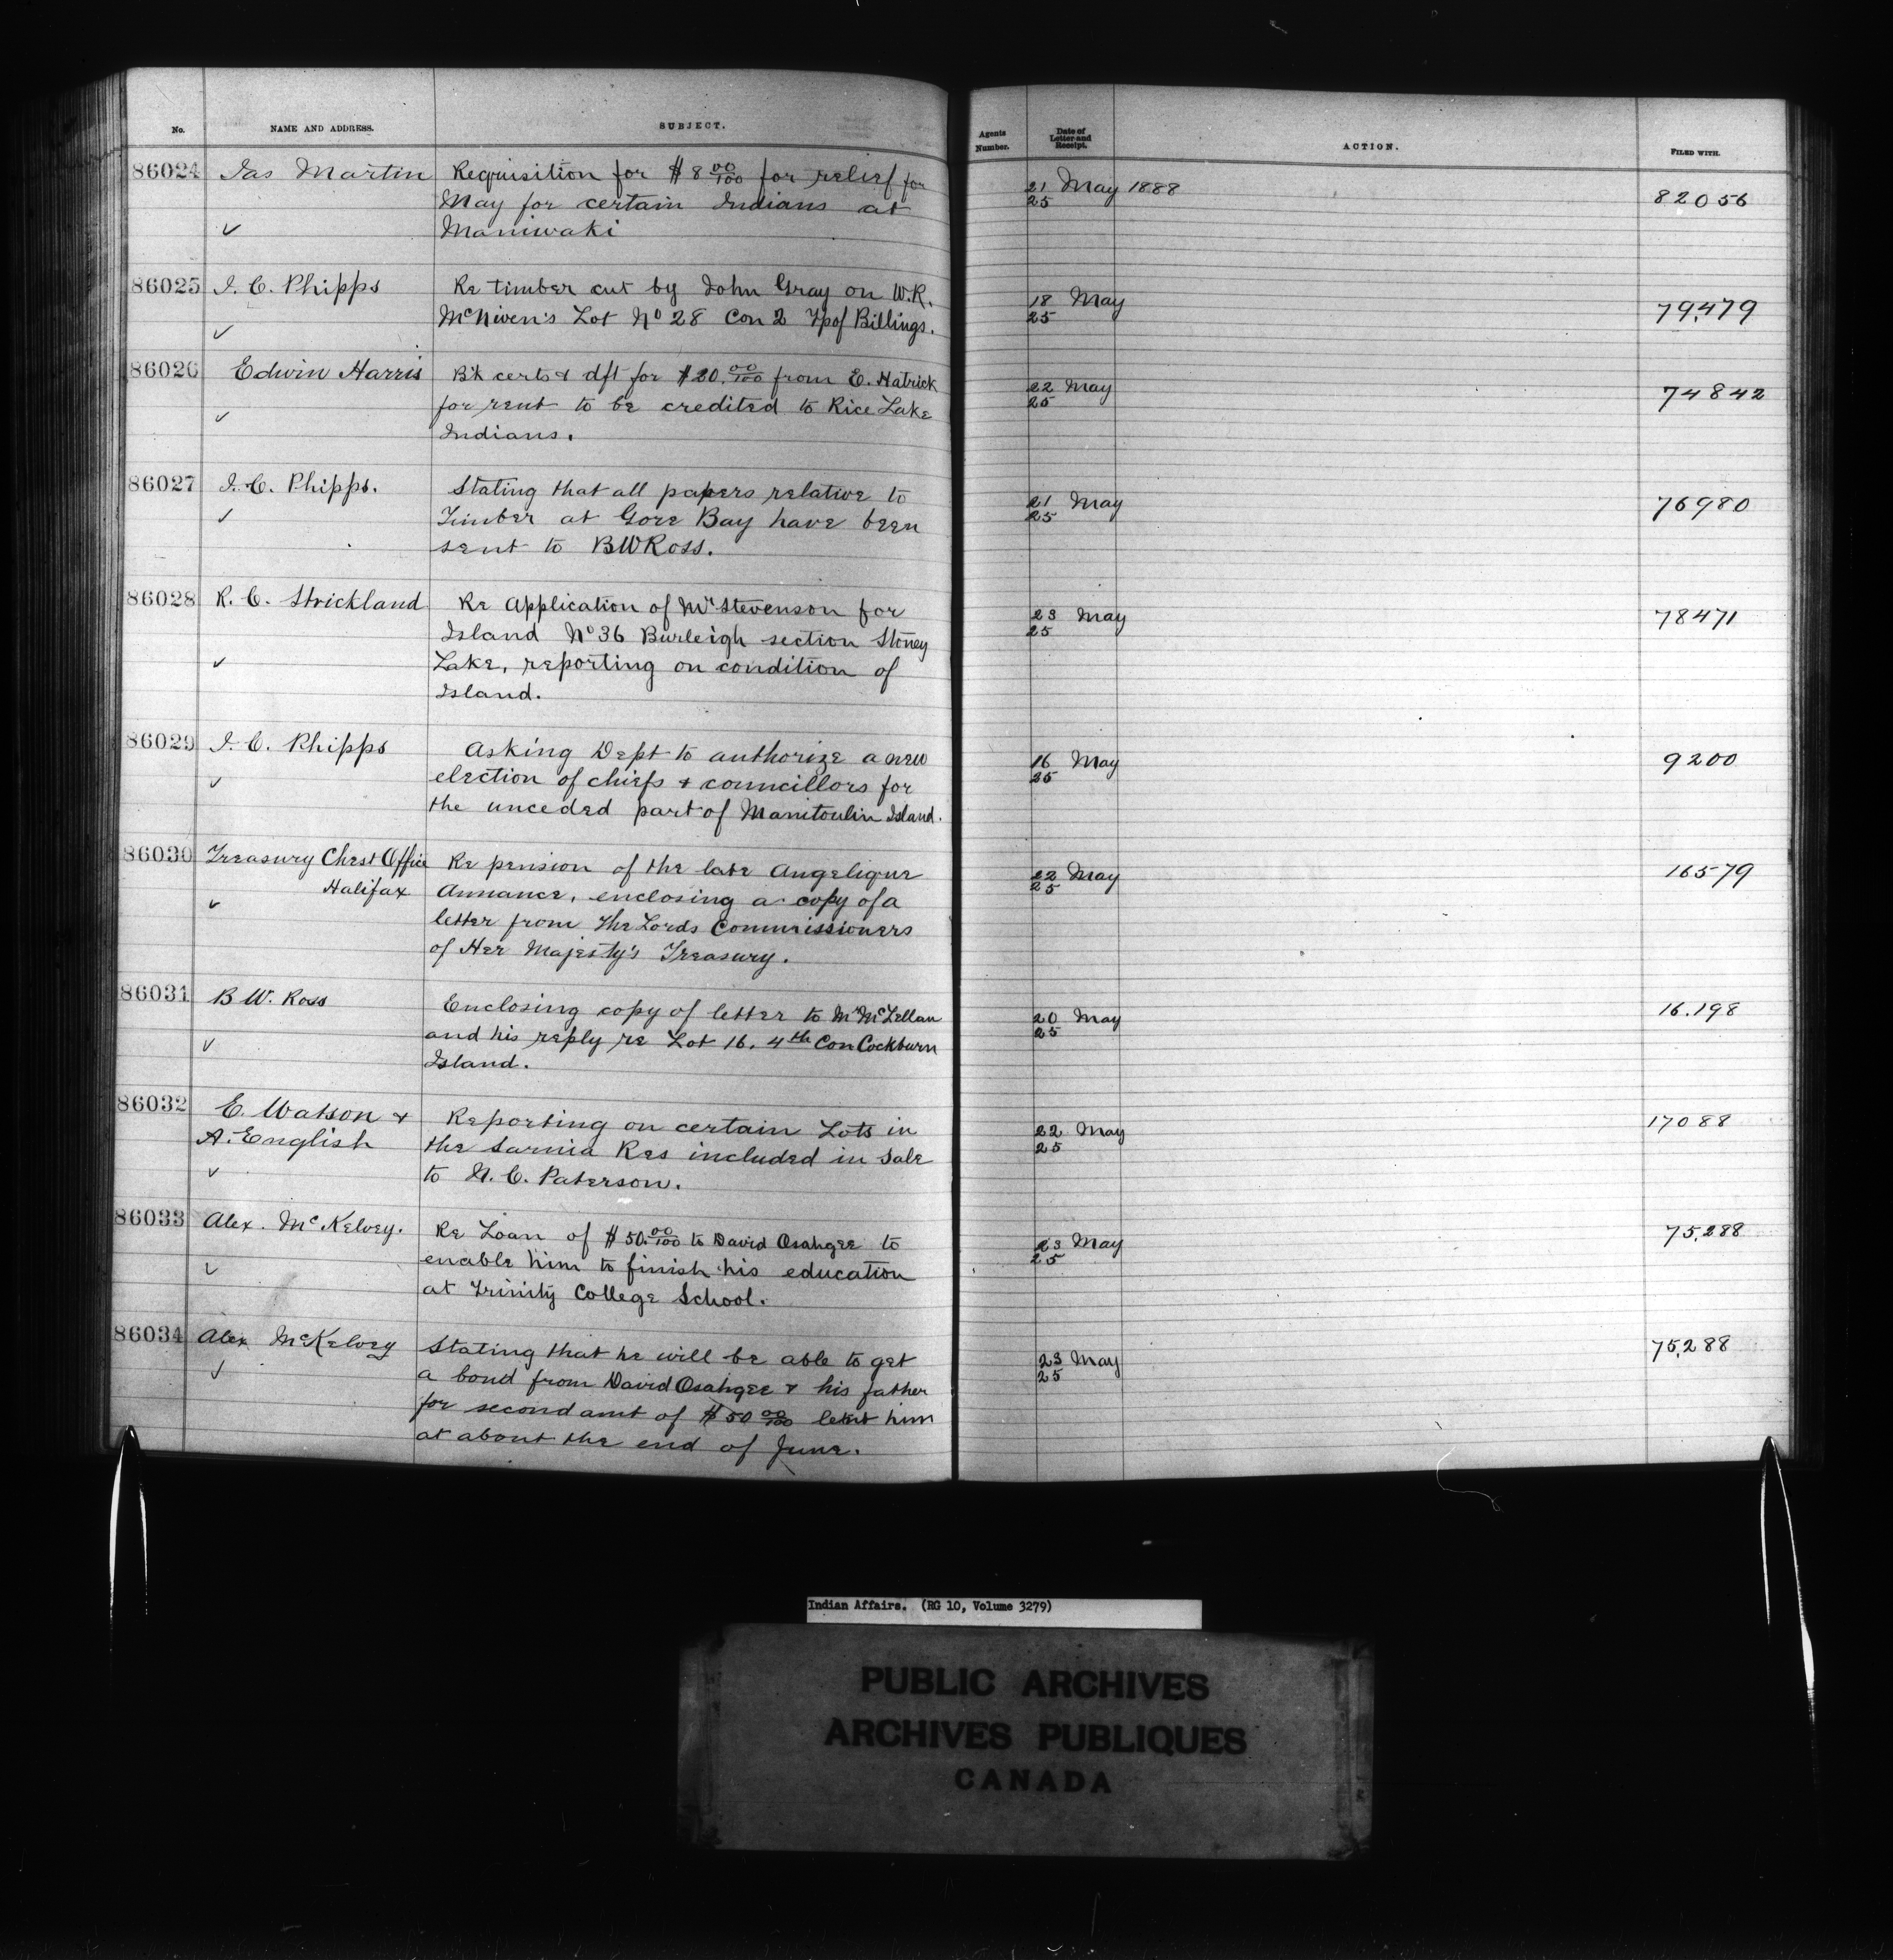 No.
NAME AND ADDRESS.
SUBJECT.
Agents Number.
Date of Letter and Receipt.
ACTION.
FILED WITH.
86024 Jas Martin Requisition for $8 00/100 for relief for 21 May 1888 82056
May for certain Indians at 25
✓ Maniwaki
86025 J. C. Phipps Re timber cut by John Gray on W.R. 18 May 79,479
✓ McNiven's Lot No 28 Con 2 Tp of Billings. 25
86026 Edwin Harris B'k certs & dft for $20.00/100 from E. Hatrick 22 May 74842
✓ for rent to be credited to Rice Lake 25
Indians.
86027 J. C. Phipps. Stating that all papers relative to 21 May 76980
✓ Timber at Gore Bay have been 25
sent to BWRoss.
86028 R. C. Strickland Re Application of Mr Stevenson for 23 May 78471
Island No 36 Burleigh section Stoney 25
✓ Lake, reporting on condition of
Island.
86029 J. C. Phipps Asking Dept to authorize a new 16 May 9200
✓ election of chiefs & councillors for 25
the unceded part of Manitoulin Island.
86030 Treasury Chest Office Re pension of the late Angelique 22 May 16579
Halifax Annance, enclosing a copy of a 25
✓ letter from The Lords Commissioners
of Her Majesty's Treasury.
86031 B W. Ross Enclosing copy of letter to Mr McLellan 20 May 16.198
✓ and his reply re Lot 16, 4th Con Cockburn 25
Island.
86032 E. Watson & Reporting on certain Lots in 22 May 17088
A. English the Sarnia Res included in sale 25
✓ to N. C. Paterson.
86033 Alex. McKelvey. Re Loan of $50.00/100 to David Osahgee to 23 May 75,288
✓ enable him to finish his education 25
at Trinity College School.
86034 Alex McKelvey Stating that he will be able to get 23 May 75,288
✓ a bond from David Osahgee & his father 25
for second amt of $50 00/100 lent him
at about the end of June.
Indian Affairs. (RG 10, Volume 3279)
PUBLIC ARCHIVES
ARCHIVES PUBLIQUES
CANADA